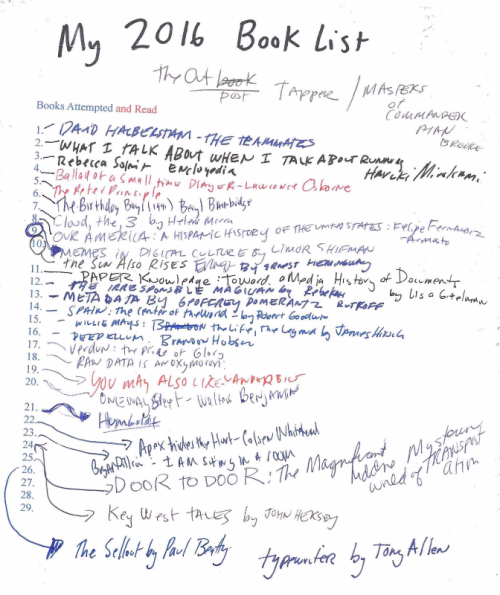 My 2016 Book List
The Outpost
Tapper / MASTERS of COMMANDER
Books Attempted and Read
1. - DAVID HALBERSTAM - THE TEAMMATES
2. - WHAT I TALK ABOUT WHEN I TALK ABOUT RUNNING
Haruki Murakami
3. - Rebecca Solnit Encloypedia
4. - Ballad of a small time PLAYER - Lawrence Osborne
5. - The Peter Principle
6. - The Birthday Boys (1991) Beryl Bainbridge
7. - Cloud, the, 3 by Helen
8. - OUR AMERICA: A HISPANIC HISTORY OF THE UNITED STATES: Felipe Fernandez - Armesto
9. MEMES IN DIGITAL CULTURE By LIMOR SHIFMAN
10. The Sun Also RISES By ERNEST HEMINGWAY
11. - PAPER Knowledge: Toward a Media History of Documents by Lisa Gitelman
12. - THE IRRESPONSIBLE MAGICIAN by Rebekah RUTKOFF
13. - METADATA By GEOFFREY POMERANTZ
14. - SPAIN: The Center of the World - by Robert Goodwin
15. - WILLIE MAYS: the Life, The Legend by JAMES HIRSCH
16. - DEEP ELLUM: BRANDON Hobson
17. - Verdun: the Pride of Glory
18. - RAW DATA IS AN OXYmoron:
19. YOU MAY ALSO LIKE: VANDERBILT
20. ONE WAY Street - Walter BENJAMIN
21.
22.
23. Apex hides the Hurt - Colson Whitehead
24. - I AM Sitting IN A ROOM
25. DOOR TO DOOR: The Magnificent Maddening Mysterious World of TRANSPORTATION
26.
27.
28. Key West TALES by JOHN HERSEY
29.
The Sellout by Paul Beatty
typewriter by Tony Allen